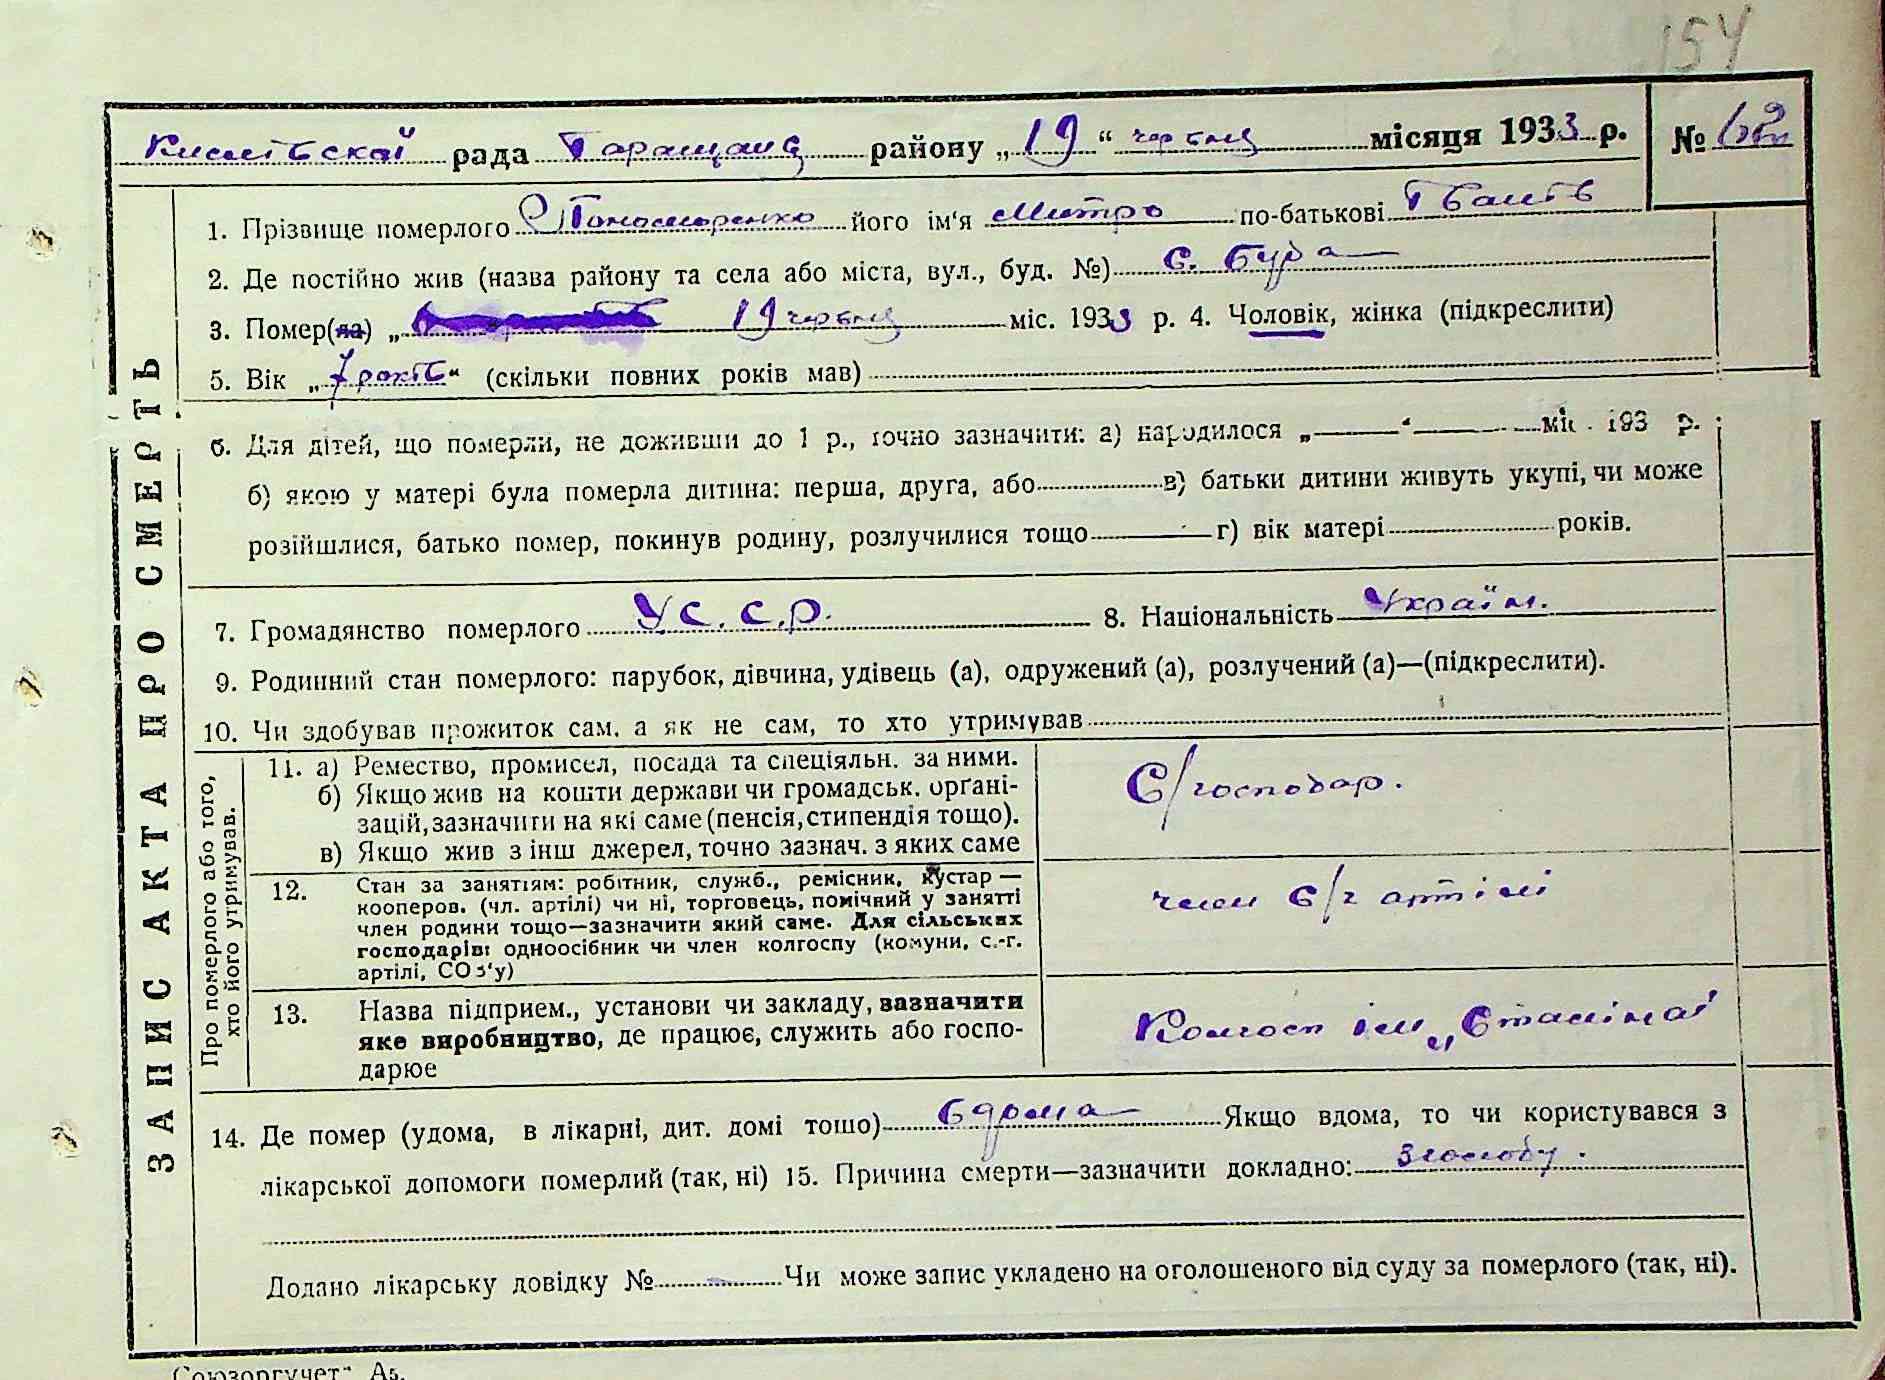 154
рада Таращанс району „19“ червня місяця 1933 р. №
1. Прізвище померлого Пономаренко його ім'я Митро по-батькові Іванів
2. Де постійно жив (назва району та села або міста, вул., буд. №) с. Бура
3. Помер(ла) „ 19 червня міс. 1933 р. 4. Чоловік, жінка (підкреслити)
5. Вік „7 років“ (скільки повних років мав)
6. Для дітей, що померли, не доживши до 1 р., точно зазначити: а) народилося „ “ міс. 193 р.
б) якою у матері була померла дитина: перша, друга, або в) батьки дитини живуть укупі, чи може
розійшлися, батько помер, покинув родину, розлучилися тощо г) вік матері років.
7. Громадянство померлого УС.С.Р. 8. Національність Україн.
9. Родинний стан померлого: парубок, дівчина, удівець (а), одружений (а), розлучений (а)—(підкреслити).
10. Чи здобував прожиток сам, а як не сам, то хто утримував
Про померлого або того, хто його утримував.
11. а) Ремество, промисел, посада та спеціяльн. за ними.
б) Якщо жив на кошти держави чи громадськ. органі-
зацій, зазначити на які саме (пенсія, стипендія тощо).
в) Якщо жив з інш джерел, точно зазнач. з яких саме
С/господар.
12. Стан за занятіям: робітник, служб., ремісник, кустар —
кооперов. (чл. артілі) чи ні, торговець, помічний у занятті
член родини тощо—зазначити який саме. Для сільських
господарів: одноосібник чи член колгоспу (комуни, с.-г.
артілі, СОЗ'у)
член с/г артілі
13. Назва підприєм., установи чи закладу, вазначити
яке виробництво, де працює, служить або госпо-
дарює
Колгосп ім „Сталіна"
14. Де помер (удома, в лікарні, дит. домі тошо) вдома Якщо вдома, то чи користувався з
лікарської допомоги померлий (так, ні) 15. Причина смерти—зазначити докладно: зголоду.
Додано лікарську довідку № Чи може запис укладено на оголошеного від суду за померлого (так, ні).
ЗАПИС АКТА ПРО СМЕРТЬ
Союзоргучет" А5.